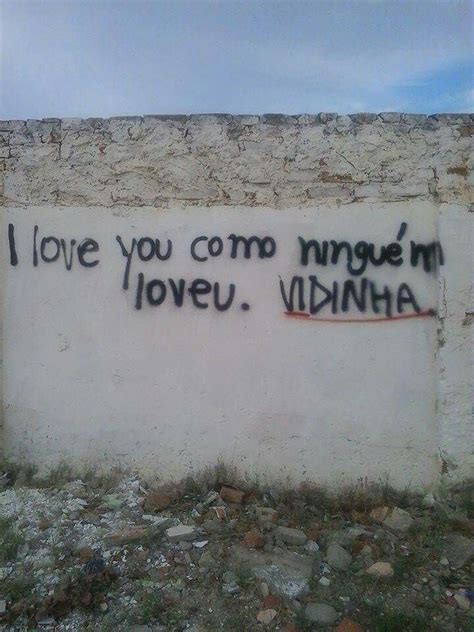 I love you como ninguém
loveu. VIDINHA.